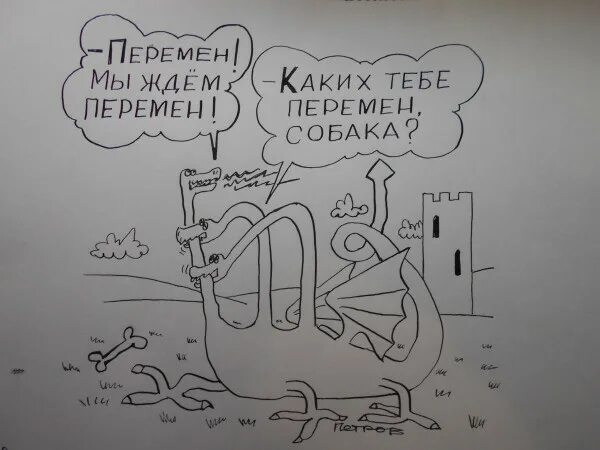 -Перемен!
Мы ждём
перемен!
-Каких тебе
перемен,
собака?
Петров